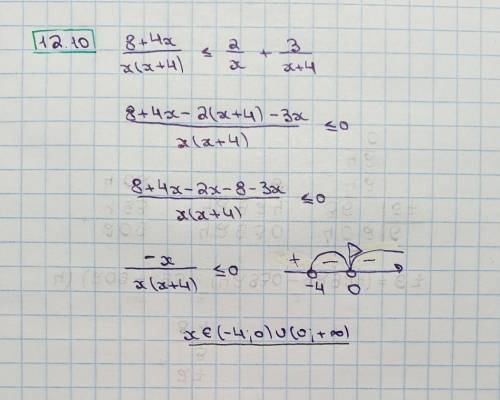 12.10 (8+4x)/(x(x+4)) ≤ 2/x + 3/(x+4)
(8+4x-2(x+4)-3x)/(x(x+4)) ≤0
(8+4x-2x-8-3x)/(x(x+4)) ≤0
(-x)/(x(x+4)) ≤0 + - -
-4 0
x∈(-4;0)∪(0;+∞)